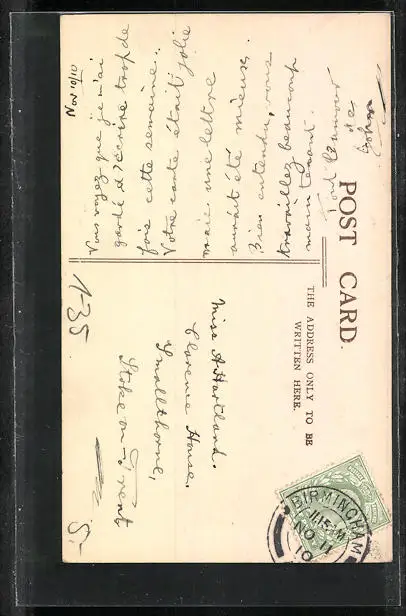 POST CARD.
THE ADDRESS ONLY TO BE
WRITTEN HERE.
Nov 10/10
Vous voyez que je n'ai
gardé d'écrire trop de
fois cette semaine.
Votre carte était jolie
mais une lettre
aurait été mieux.
Bien entendu, vous
travaillez beaucoup
maintenant.
Miss A. Hartland.
Clarence House.
Smallthorne,
Stoke on Trent
1-35
5.-
BIRMINGHAM
11.15
NO 11
10